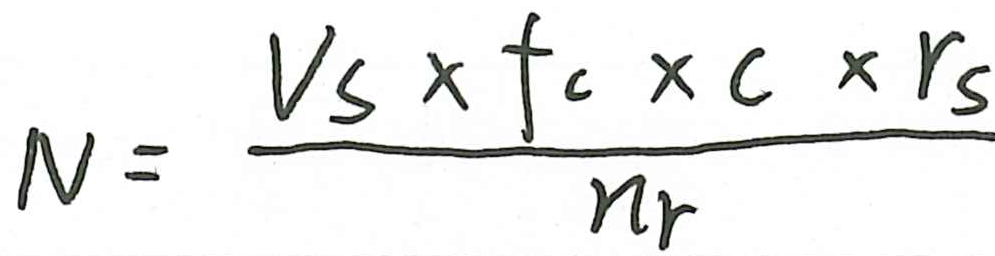 N = \frac{V_s \times f_c \times c \times r_s}{n_r}